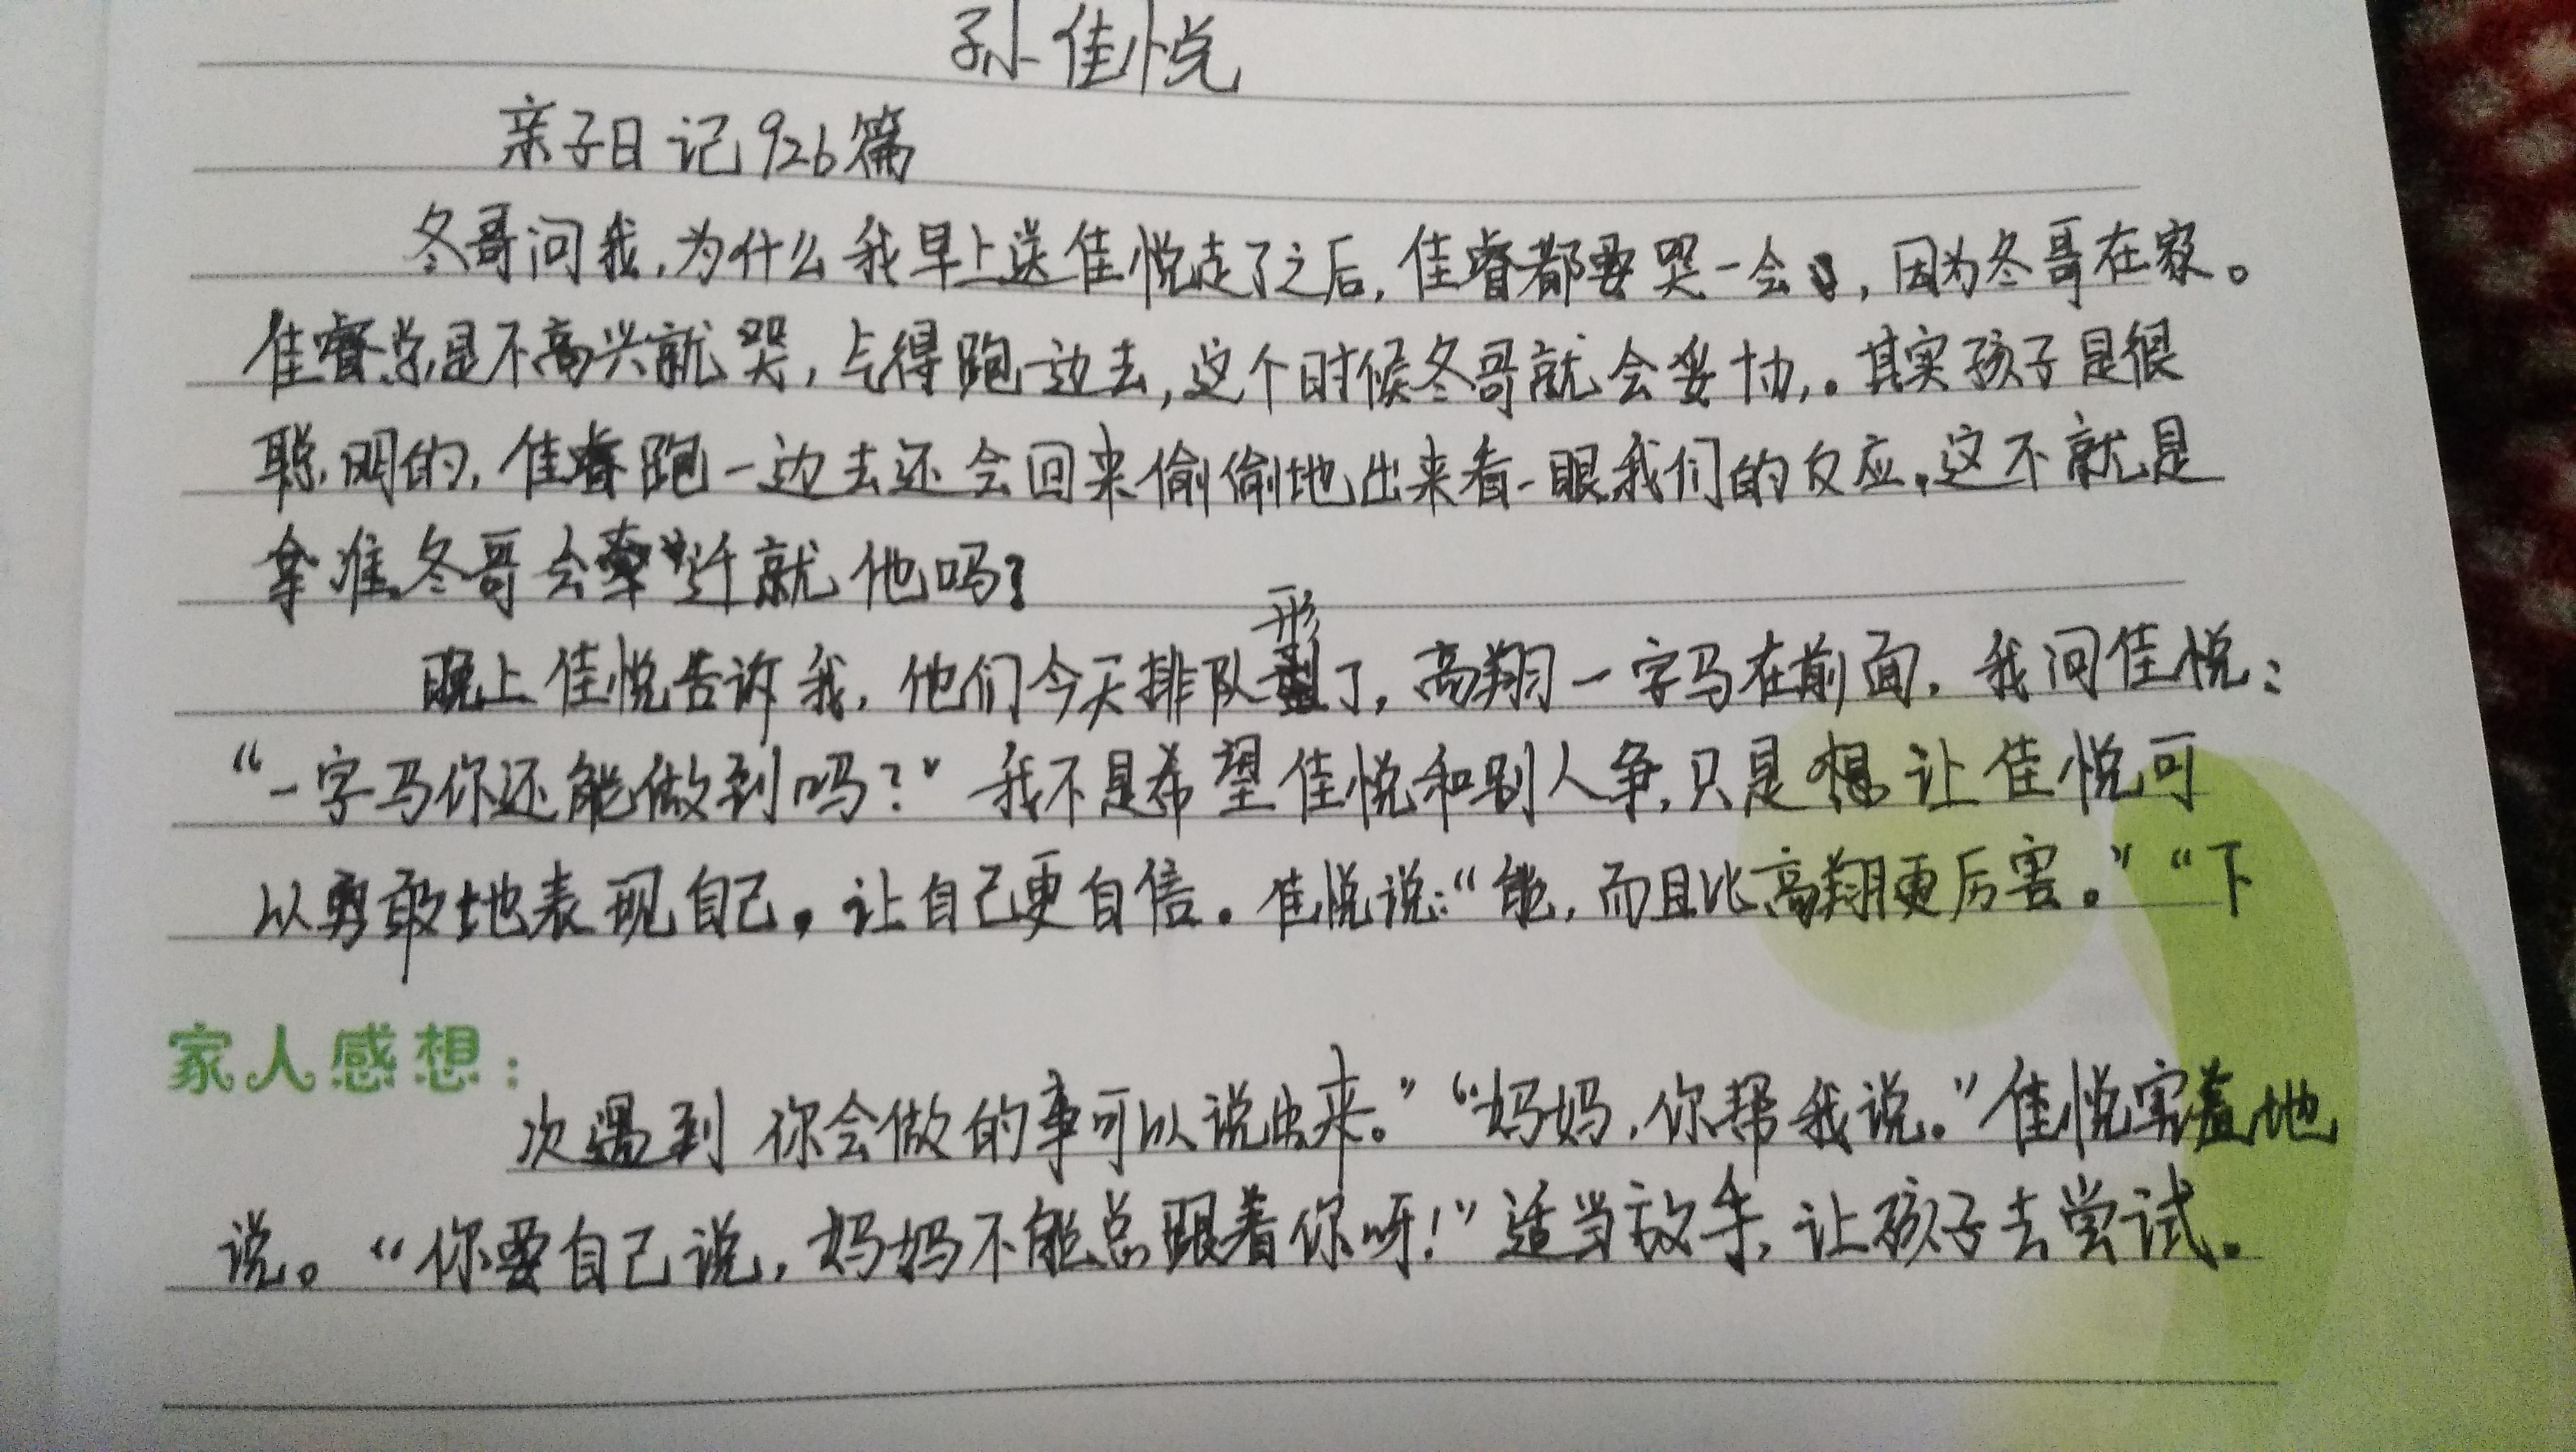 孙佳悦
亲子日记926篇
冬哥问我,为什么我早上送佳悦走了之后,佳睿都要哭一会,因为冬哥在家。
佳睿总是不高兴就哭,气得跑一边去,这个时候冬哥就会妥协,。其实孩子是很
聪明的,佳睿跑一边去还会回来偷偷地出来看一眼我们的反应,这不就是
拿准冬哥会迁就他吗?
晚上佳悦告诉我,他们今天排队形了,高翔一字马在前面,我问佳悦:
“一字马你还能做到吗?”我不是希望佳悦和别人争,只是想让佳悦可
以勇敢地表现自己,让自己更自信。佳悦说:“能,而且比高翔更厉害。”“下
家人感想:
次遇到你会做的事可以说出来。”“妈妈,你帮我说。”佳悦害羞地
说。“你要自己说,妈妈不能总跟着你呀!”适当放手,让孩子去尝试。